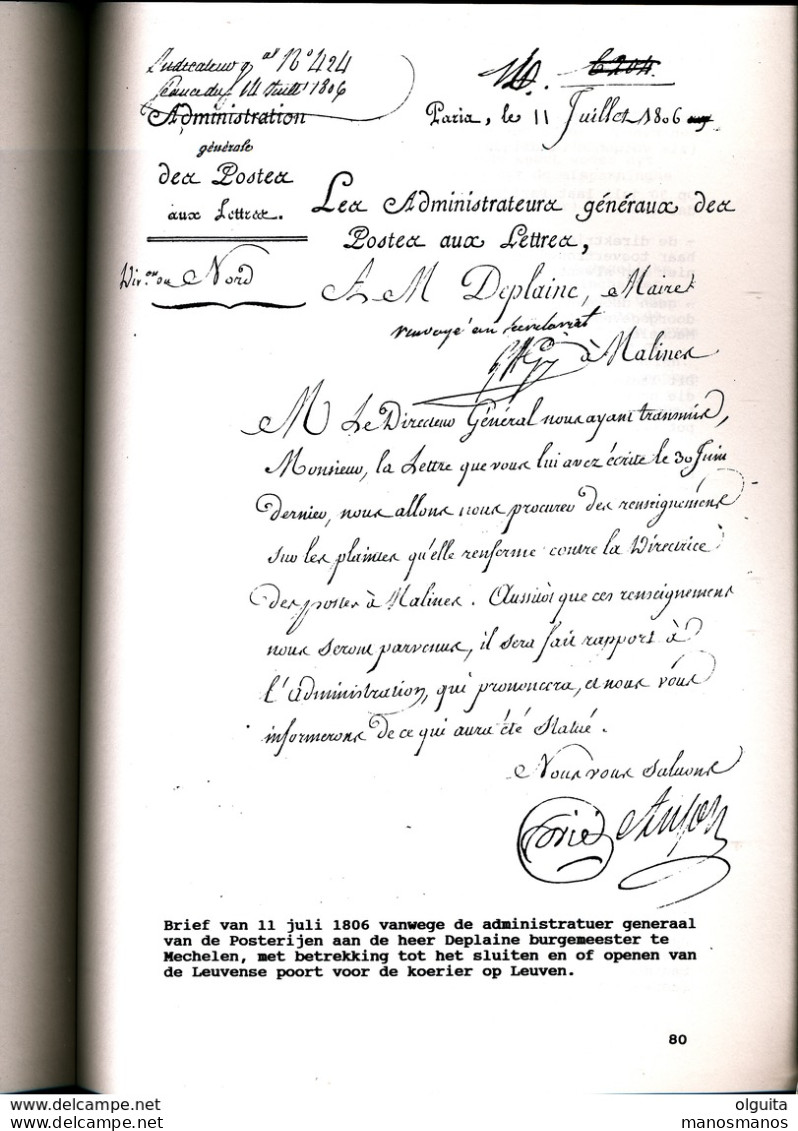 Indicateur g.al N.° 424
Séance du 14 Juillet 1806
Administration
générale
des Postes
aux Lettres.
Div.on du Nord
6204.
Paris, le 11 Juillet 1806
Les Administrateurs généraux des
Postes aux Lettres,
A M Deplaine, Maire
renvoyé au secretariat
à Malines
M Le Directeur Général nous ayant transmis,
Monsieur, la Lettre que vous lui avez écrite le 30 Juin
dernier, nous allons nous procurer des renseignemens
sur les plaintes qu'elle renferme contre la Directrice
Des postes à Malines. Aussitôt que ces renseignemens
nous seront parvenus, il sera fait rapport à
l'administration, qui prononcera, et nous vous
informerons de ce qui aura été statué.
Nous vous saluons
Brief van 11 juli 1806 vanwege de administratuer generaal
van de Posterijen aan de heer Deplaine burgemeester te
Mechelen, met betrekking tot het sluiten en of openen van
de Leuvense poort voor de koerier op Leuven.
80
olguita
manosmanos_